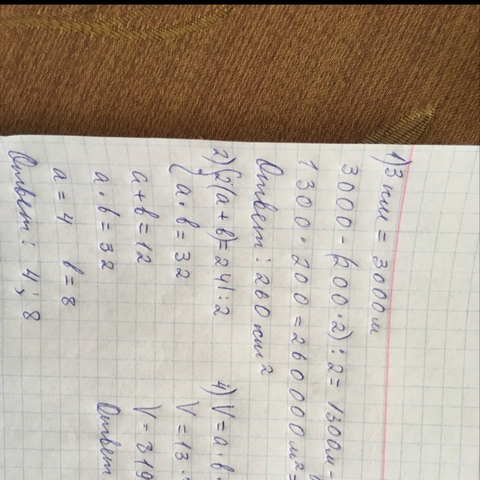 1) 3 км = 3000 м
3000 - (200·2) : 2 = 1300 м -
1300 · 200 = 260000 м² =
Ответ: 260 км²
2) { 2(a+b)=24 | : 2
{ a · b = 32
a + b = 12
a · b = 32
a = 4 b = 8
Ответ: 4; 8
4) V = a · b ·
V = 13 ·
V = 319
Ответ